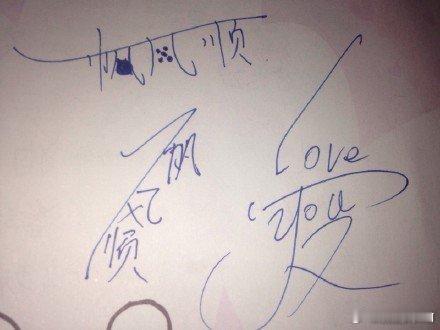 一帆风顺
一帆风顺
Love
You
爱